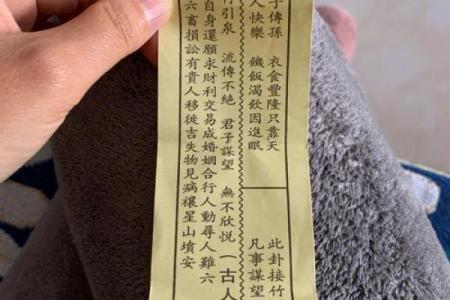 子傳孫 衣食豐隆只靠天
人快樂 饑飯渴飲困進眠
此卦接竹
凡事謀望
引泉 流傳不絕 君子謀望 無不欣悅（古人
自身還願求財利交易成婚姻合行人動尋人難六
六畜損訟有貴人移徙吉失物見病禳星山墳安